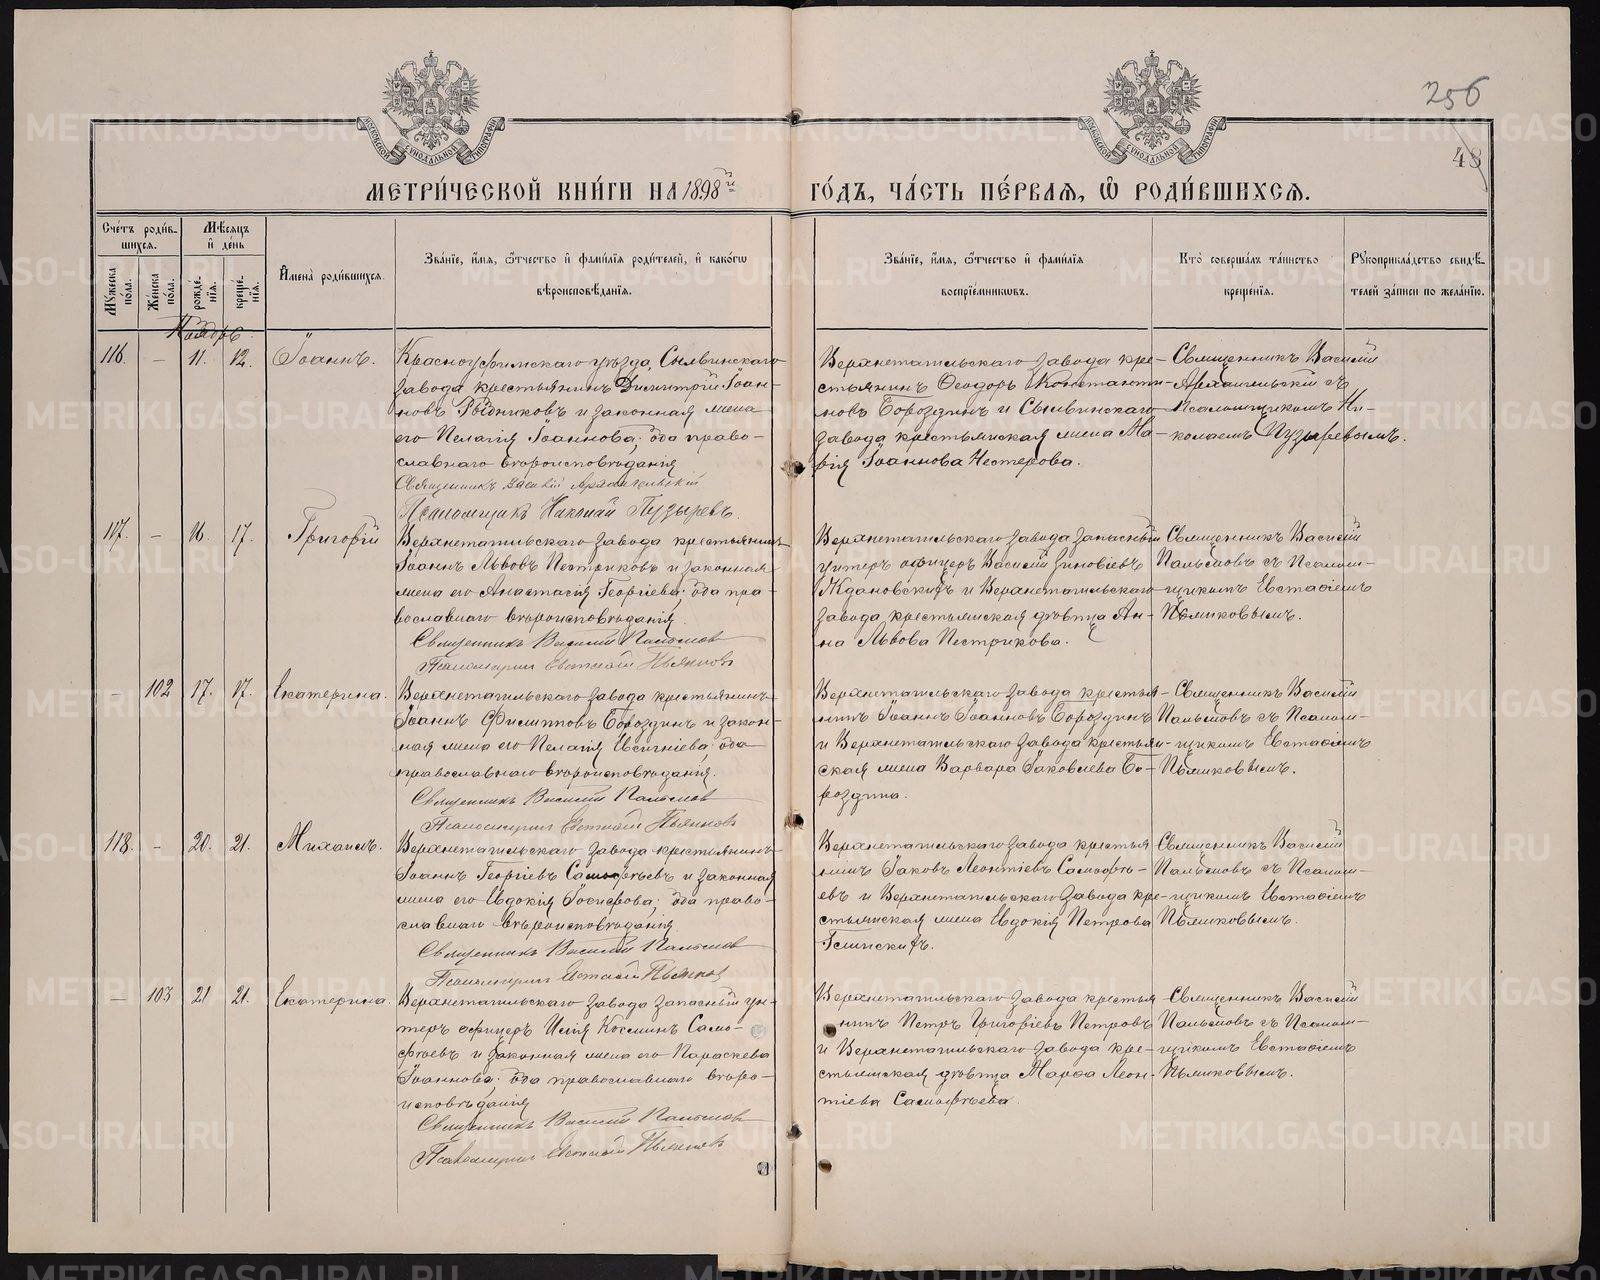 256
48
МЕТРИ́ЧЕСКОЙ КНИ́ГИ НА 1898й
ГО́ДЪ, ЧА́СТЬ ПЕ́РВАЯ, Ѿ РОДИ́ВШИХСЯ.
Сче́тъ роди́в-
шихся.
Мѣ́сяцъ
и҆ де́нь
Му́жеска по́ла.
Же́нска по́ла.
рожде́-
нїя.
креще́-
нїя.
И҆мена̀ роди́вшихся.
Зва́нїе, и҆́мя, ѻ҆́тчество и҆ фами́лїя роди́телей, и҆ како́гѡ
вѣроисповѣ́данїя.
Зва́нїе, и҆́мя, ѻ҆́тчество и҆ фами́лїя
воспрїе́мниковъ.
Кто̀ соверша́лъ та́инство
креще́нїя.
Рукоприкла́дство свидѣ́-
телей за́писи по жела́нїю.
Ноябрь
116. — 11. 12. Іоаннъ.
Красноуфимскаго уѣзда, Сылвинскаго
завода крестьянинъ Димитрій Іоан-
новъ и законная жена
его Пелагія Іоаннова; оба право-
славнаго вѣроисповѣданія
Священникъ Василій Архангельскій
Псаломщикъ Николай Пузыревъ.
Верхнетагильскаго завода кре-
стьянинъ Ѳеодоръ Константи-
новъ Бороздинъ и Сылвинскаго
завода крестьянская жена Ма-
рія Іоаннова Нестерова.
Священникъ Василій
Архангельскій съ
псаломщикомъ Ни-
колаемъ Пузыревымъ.
117. — 16. 17. Григорій
Верхнетагильскаго завода крестьянинъ
Іоаннъ Львовъ Пестриковъ и законная
жена его Анастасія Георгіева; оба пра-
вославнаго вѣроисповѣданія
Священникъ Василій Пальмовъ
Псаломщикъ Евстафій Пьянковъ
Верхнетагильскаго завода запасный
унтеръ офицеръ Василій Зиновіевъ
Ждановскихъ и Верхнетагильскаго
завода крестьянская дѣвица Ан-
на Львова Пестрикова.
Священникъ Василій
Пальмовъ съ Псалом-
щикомъ Евстафіемъ
Пьянковымъ.
— 102 17. 17. Екатерина.
Верхнетагильскаго завода крестьянинъ
Іоаннъ Филипповъ Бороздинъ и закон-
ная жена его Пелагія Евсигніева; оба
православнаго вѣроисповѣданія.
Священникъ Василій Пальмовъ
Псаломщикъ Евстафій Пьянковъ
Верхнетагильскаго завода крестья-
нинъ Іоаннъ Іоанновъ Бороздинъ
и Верхнетагильскаго завода крестьян-
ская жена Варвара Іаковлева Бо-
роздина.
Священникъ Василій
Пальмовъ съ Псалом-
щикомъ Евстафіемъ
Пьянковымъ.
118. — 20. 21. Михаилъ.
Верхнетагильскаго завода крестьянинъ
Іоаннъ Георгіевъ Самофѣевъ и законная
жена его Евдокія Іосифова; оба право-
славнаго вѣроисповѣданія
Священникъ Василій Пальмовъ
Псаломщикъ Евстафій Пьянковъ
Верхнетагильскаго завода крестья
нинъ Іаковъ Леонтіевъ Самофѣ-
евъ и Верхнетагильскаго завода кре-
стьянская жена Евдокія Петрова
Священникъ Василій
Пальмовъ съ Псалом-
щикомъ Евстафіемъ
Пьянковымъ.
— 103 21 21. Екатерина.
Верхнетагильскаго завода запасный ун-
теръ офицеръ Илія Косминъ Само-
фѣевъ и законная жена его Параскева
Іоаннова; оба православнаго вѣро-
исповѣданія
Священникъ Василій Пальмовъ
Псаломщикъ Евстафій Пьянковъ
Верхнетагильскаго завода крестья-
нинъ Петръ Григоріевъ Петровъ
и Верхнетагильскаго завода кре-
стьянская дѣвица Марѳа Леон-
тіева Самофѣева.
Священникъ Василій
Пальмовъ съ Псалом-
щикомъ Евстафіемъ
Пьянковымъ.
METRIKI.GASO-URAL.RU